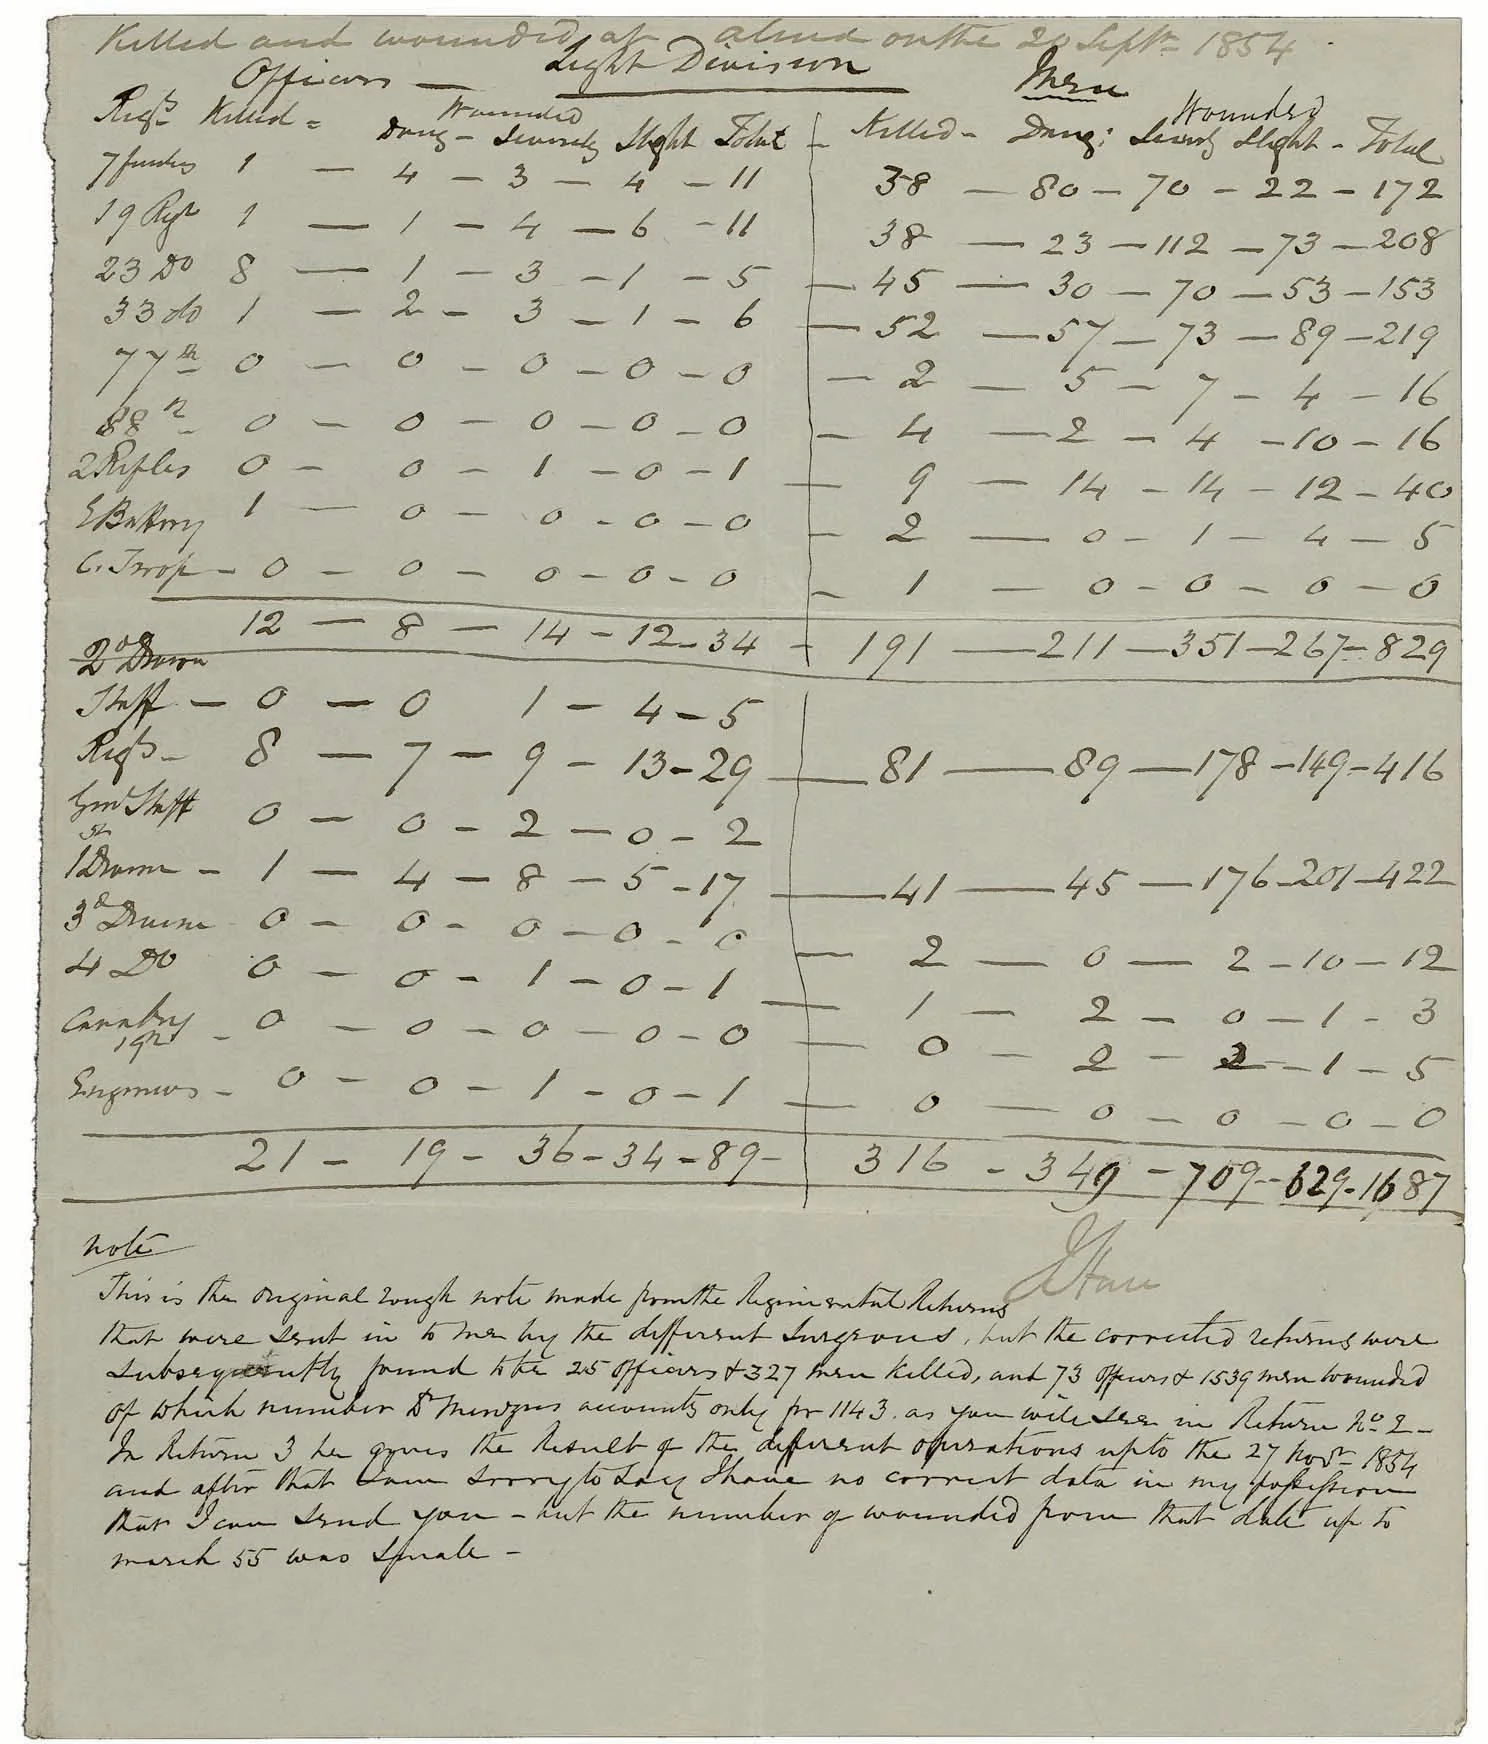 Killed and wounded at alma on the 20 Septr 1854
Officers — Light Division Men
Regts Killed = Wounded Dang — Severely Slight Total — Killed — Wounded Dang: Severly Slight — Total
7 fusilrs 1 — 4 — 3 — 4 — 11 38 — 80 — 70 — 22 — 172
19 Regt 1 — 1 — 4 — 6 — 11 38 — 23 — 112 — 73 — 208
23 Do 8 — 1 — 3 — 1 — 5 — 45 — 30 — 70 — 53 — 153
33 do 1 — 2 — 3 — 1 — 6 — 52 — 57 — 73 — 89 — 219
77th 0 — 0 — 0 — 0 — 0 — 2 — 5 — 7 — 4 — 16
88th 0 — 0 — 0 — 0 — 0 — 4 — 2 — 4 — 10 — 16
2 Rifles 0 — 0 — 1 — 0 — 1 — 9 — 14 — 14 — 12 — 40
E Battery 1 — 0 — 0 — 0 — 0 — 2 — 0 — 1 — 4 — 5
C. Troop — 0 — 0 — 0 — 0 — 0 — 1 — 0 — 0 — 0 — 0
12 — 8 — 14 — 12 — 34 — 191 — 211 — 351 — 267 — 829
2d Divison
Staff — 0 — 0 1 — 4 — 5
Regts — 8 — 7 — 9 — 13 — 29 — 81 — 89 — 178 — 149 — 416
Genl Staff 0 — 0 — 2 — 0 — 2
1st Division — 1 — 4 — 8 — 5 — 17 — 41 — 45 — 176 — 201 — 422
3d Division 0 — 0 — 0 — 0 — 0 — 2 — 0 — 2 — 10 — 12
4 Do 0 — 0 — 1 — 0 — 1 — 1 — 2 — 0 — 1 — 3
Cavalry — 0 — 0 — 0 — 0 — 0 — 0 — 2 — 2 — 1 — 5
Engineers — 0 — 0 — 1 — 0 — 1 — 0 — 0 — 0 — 0 — 0
21 — 19 — 36 — 34 — 89 — 316 — 349 — 709 — 629 — 1687
note
JHall
This is the original rough note made from the Regimental Returns
that were sent in to me by the different Surgeons, but the corrected returns were
subsequently found to be 25 officers & 327 men killed, and 73 officers & 1539 men wounded
of which number Dr Menzies accounts only for 1143. as you will see in Return No 2 —
In Return 3 he gives the Result of the different operations up to the 27 Novr 1854
and after that I am sorry to say I have no correct data in my possession
that I can send you — but the number of wounded from that date up to
march 55 was small —